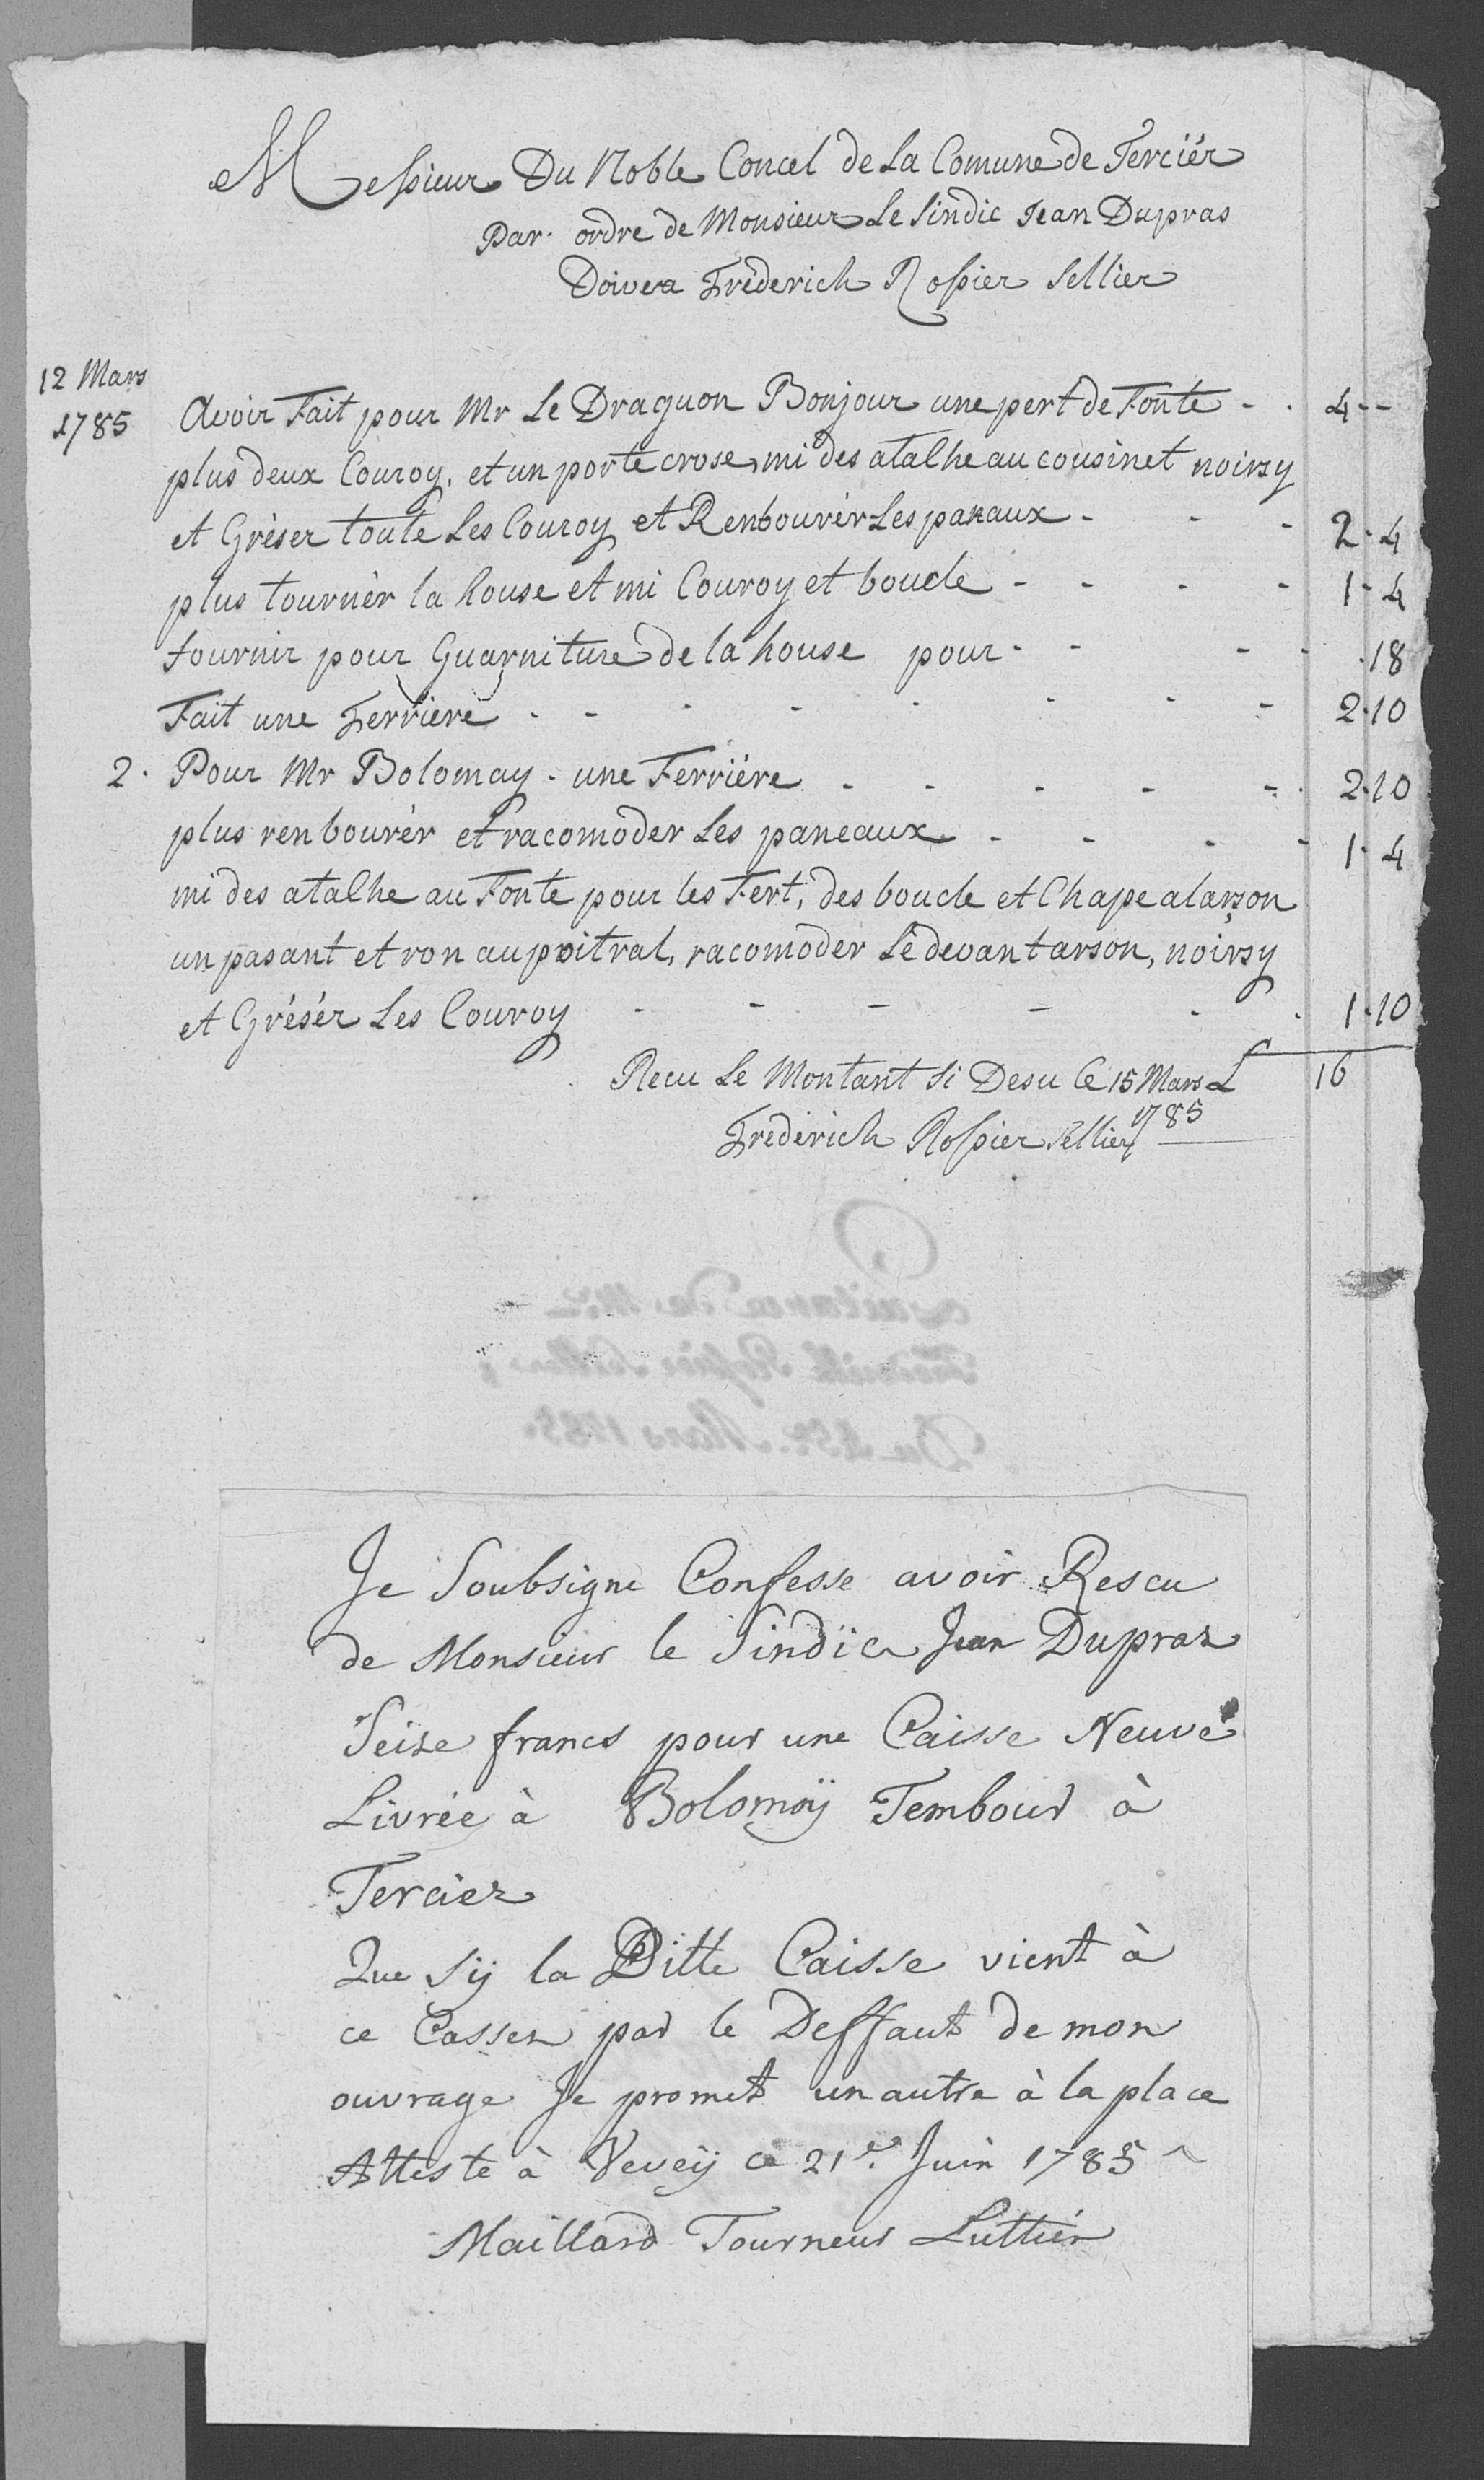 Messieur Du Noble Concel de La Comune de Terciér
Par ordre de Monsieur Le Sindic Jean Dupras
Doivera Fréderich Rossier Sellier
12 Mars
1785 Avoir Fait pour Mr Le Draguon Bonjour une pert de Fonte - - 4 - -
plus deux Couroy, et un porte crose, mi des atalhe au cousinet noirsy
et Gréser toute Les Couroy et Renbourér Les panaux - - - 2 - 4
plus tournér la house et mi Couroy et boucle - - - - 1 - 4
fournir pour Guarniture de la house pour - - - - 18
Fait une Ferriere - - - - - - - - 2 - 10
2 . Pour Mr Bolomay . une Ferriére - - - - - 2 - 10
plus renbourér et racomoder Les paneaux - - - - 1 - 4
mi des atalhe au Fonte pour les Fert, des boucle et Chape alarson
un pasant et ron au poitral, racomoder Le devant arson, noirsy
et Grésér Les Couroy - - - - - - 1 - 10
Recu Le Montant si Desu Ce 15 Mars L 16
1785
Frederich Rossier Sellier
Quitance de Mr
Frederich Rossier Sellier
Du 15e. Mars 1785.
Je Soubsigne Confesse avoir Rescu
de Monsieur le Sindïc Jean Dupraz
Seize francs pour une Caisse Neuve
Livrée à Bolomoÿ Tembour à
Tercier
Que sÿ la Ditte Caisse vient à
ce Casser par le Deffaut de mon
ouvrage Je promet un autre à la place
Atteste à Veveÿ ce 21e. Juin 1785
Maillard Tourneur Luttier